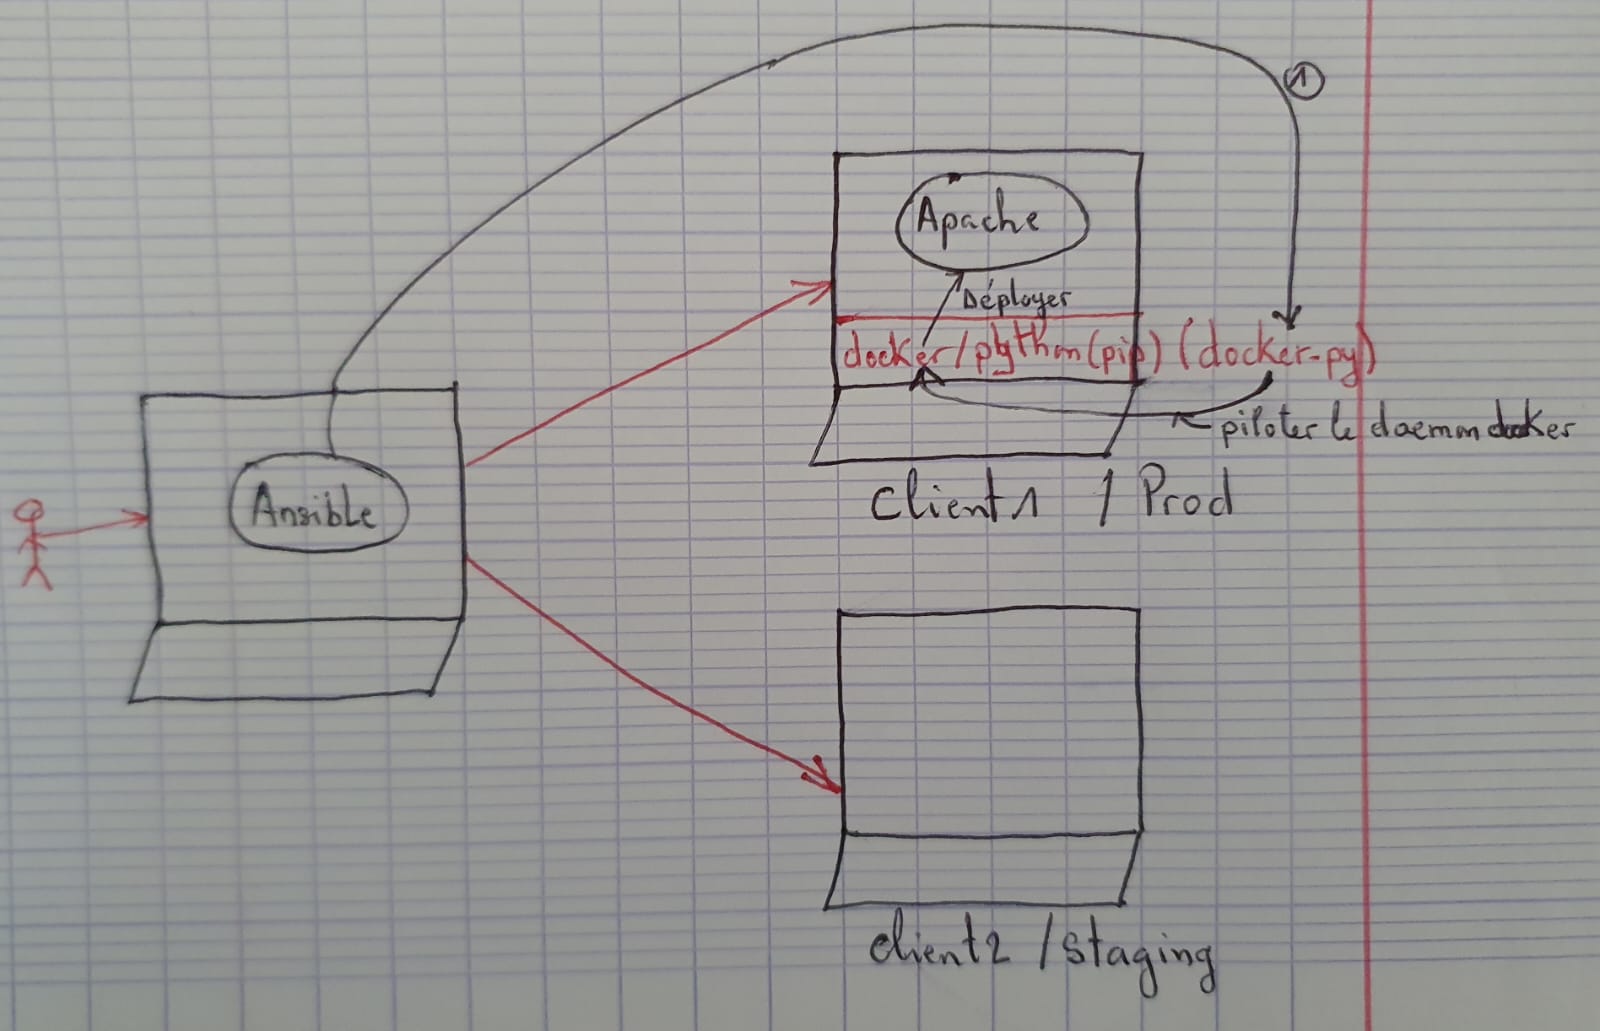 ①
Apache
Déployer
docker/python(pip) (docker-py)
piloter le daemon docker
Ansible
Client1 / Prod
client2 / staging